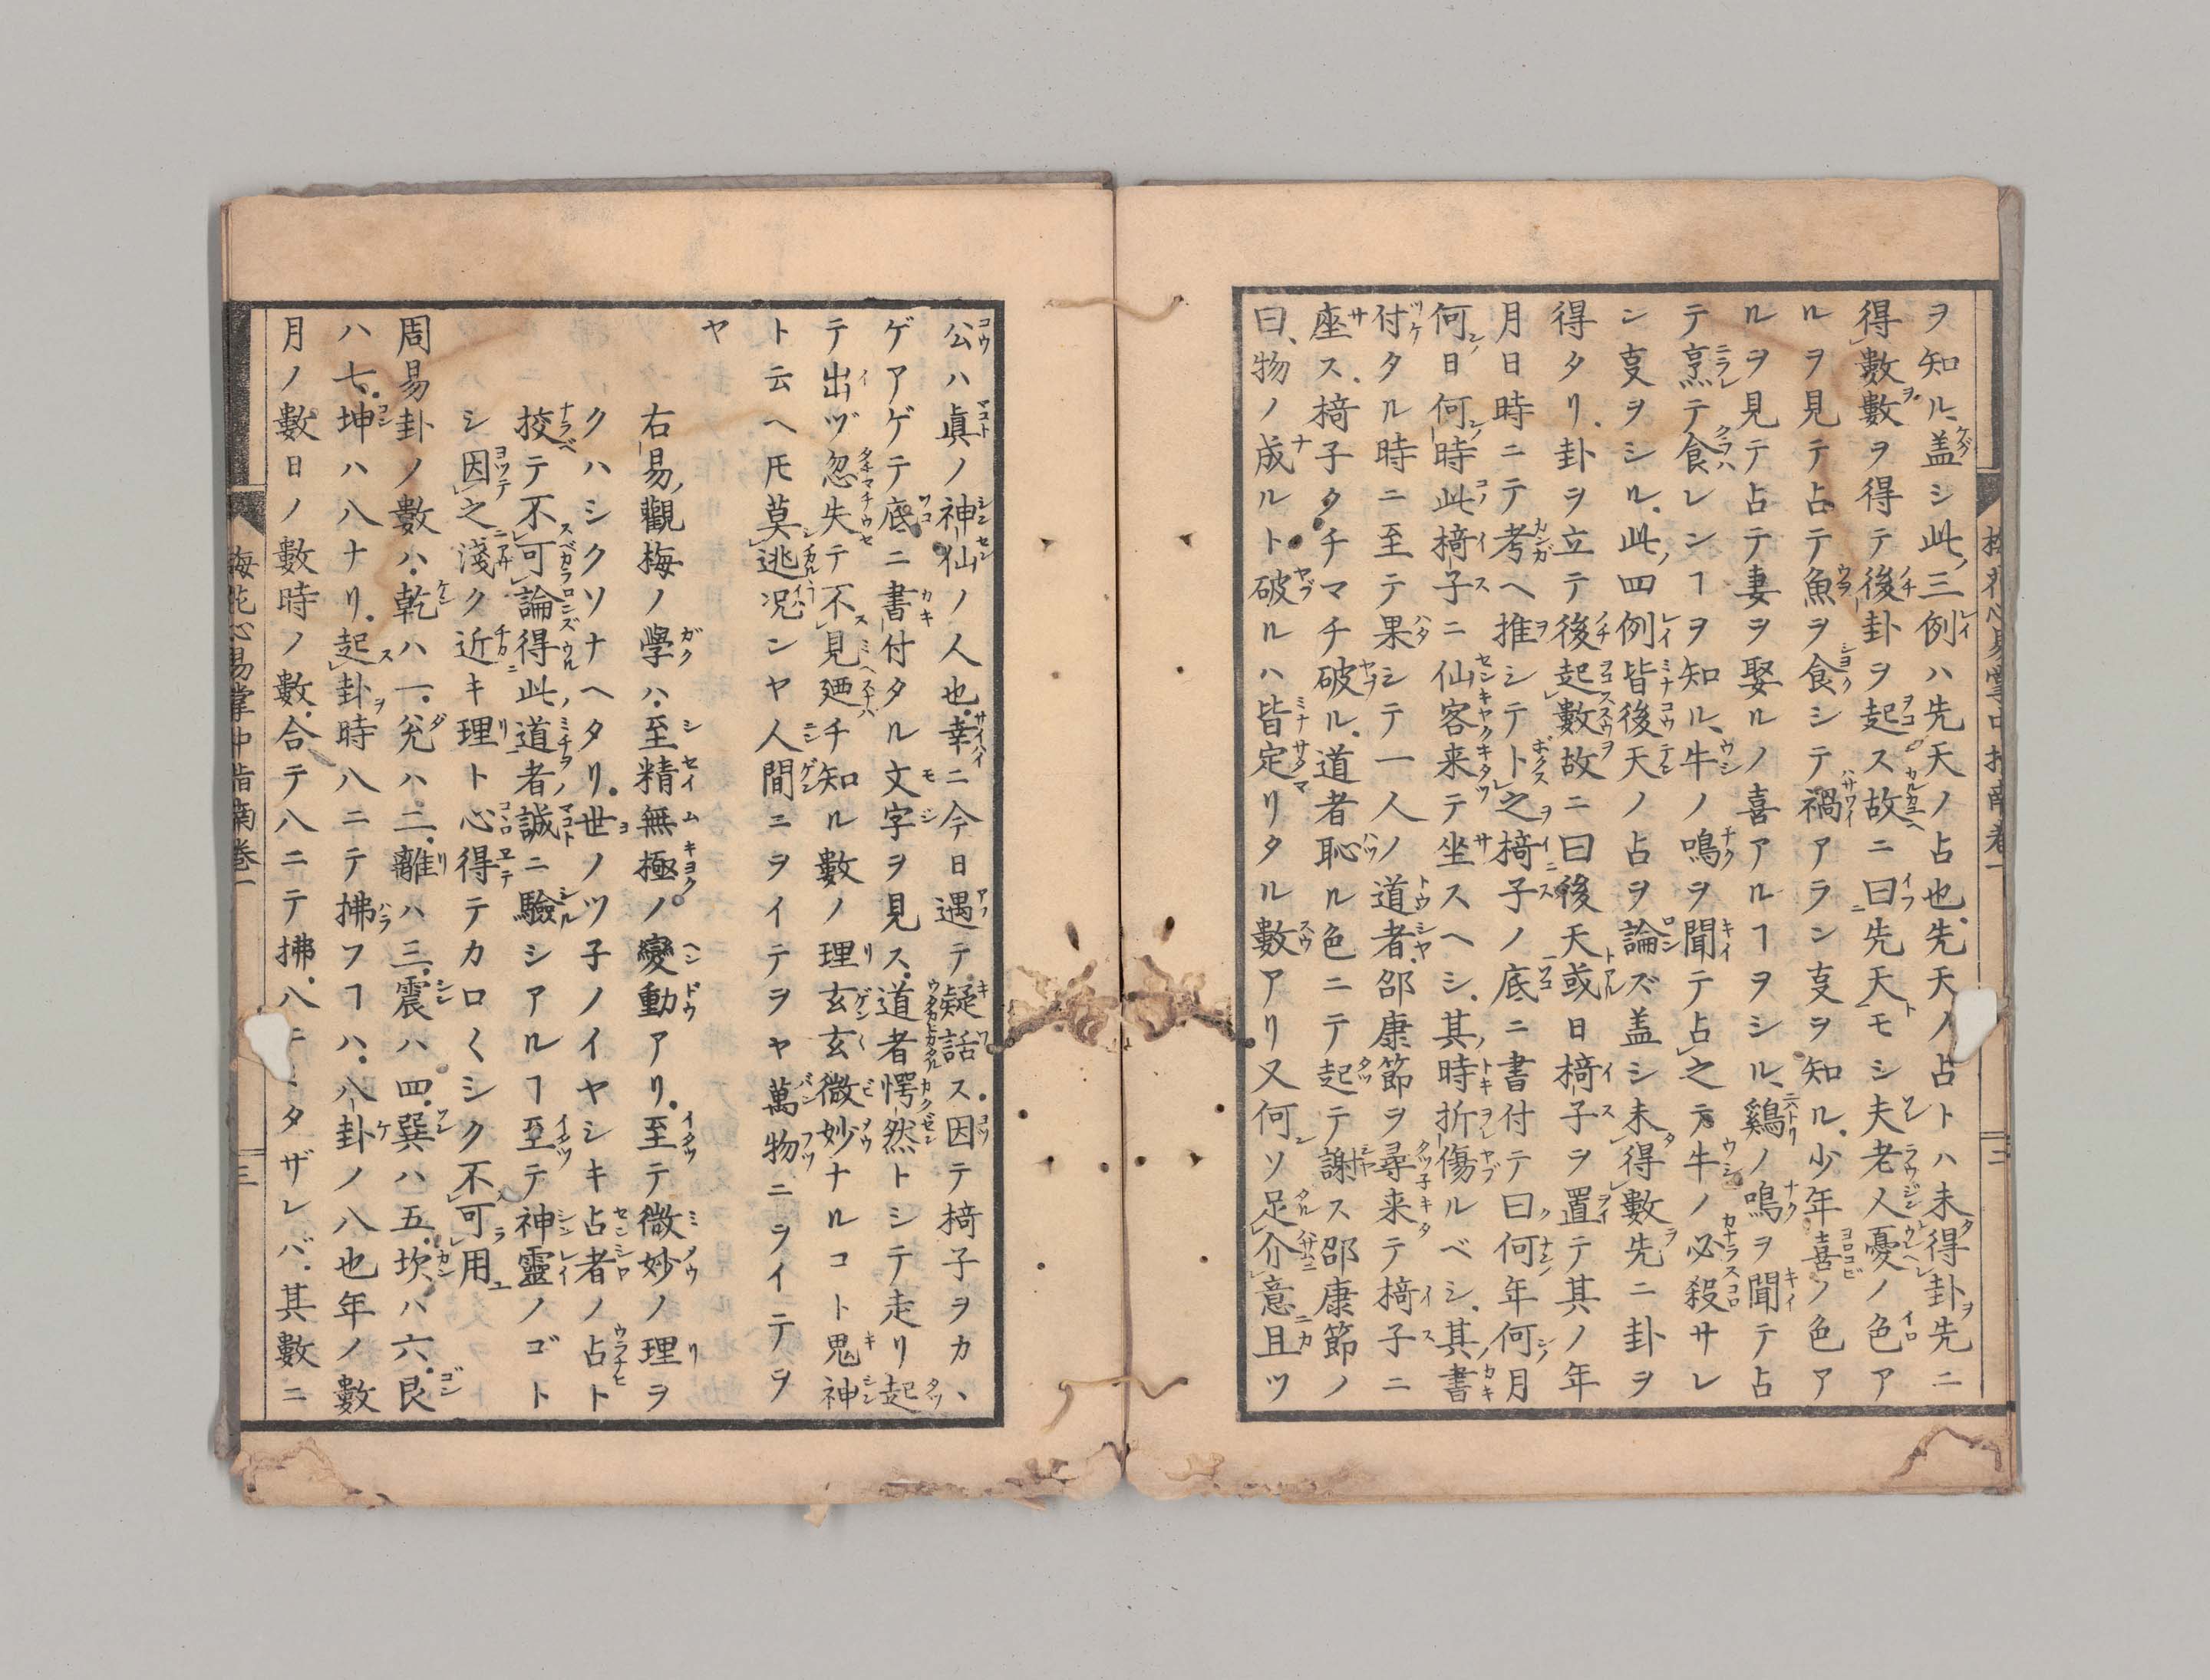 ヲ知ル、盖シ此ノ三例ハ先天ノ占也、先天ノ占トハ未得卦ヲ先ニ
得數ヲ數ヲ得テ後卦ヲ起ス故ニ曰先天トモシ夫老人憂ノ色ア
ルヲ見テ占テ魚ヲ食シテ禍アラン支ヲ知ル、少年喜ノ色ア
ルヲ見テ占テ妻ヲ娶ルノ喜アルヿヲシル、鷄ノ鳴ヲ聞テ占
テ烹テ食レンヿヲ知ル、牛ノ鳴ヲ聞テ占之テ牛ノ必殺サレ
ン支ヲシル、此ノ四例皆後天ノ占ヲ論ズ盖シ未得數先ニ卦ヲ
得タリ、卦ヲ立テ後起數故ニ曰後天或日椅子ヲ置テ其ノ年
月日時ニテ考ヘ推シテト之椅子ノ底ニ書付テ曰ク何年何月
何日何時此椅子ニ仙客来テ坐スヘシ、其時折傷ルベシ、其書
付タル時ニ至テ果シテ一人ノ道者、邵康節ヲ尋来テ椅子ニ
座ス、椅子タチマチ破ル、道者恥ル色ニテ起テ謝ス邵康節ノ
曰、物ノ成ルト破ルハ皆定リタル數アリ又何ソ足介意且ツ
梅花心易掌中指南巻一
二
公ハ眞ノ神仙ノ人也、幸ニ今日遇テ疑話ス・因テ椅子ヲカヽ
ゲアゲテ底ニ書付タル文字ヲ見ス、道者愕然トシテ走リ起
テ出ヅ忽失テ不見廼チ知ル數ノ理玄玄微妙ナルコト鬼神
ト云ヘ𪜈莫逃况ンヤ人間ニヲイテヲヤ萬物ニヲイテヲ
ヤ
右易觀梅ノ學ハ、至精無極ノ變動アリ、至テ微妙ノ理ヲ
クハシクソナヘタリ、世ノツ子ノイヤシキ占者ノ占ト
挍テ不可論得此道者誠ニ驗シアルヿ至テ神靈ノゴト
シ因之淺ク近キ理ト心得テカロ〱シク不可用
周易卦ノ數ハ、乾ハ一、兊ハ二、離ハ三、震ハ四、巽ハ五、坎ハ六、艮
ハ七、坤ハ八ナリ、起卦時八ニテ拂フヿハ、八卦ノ八也年ノ數
月ノ數日ノ數時ノ數、合テ八ニテ拂、八ニミタザレバ、其數ニ
梅花心易掌中指南巻一
三